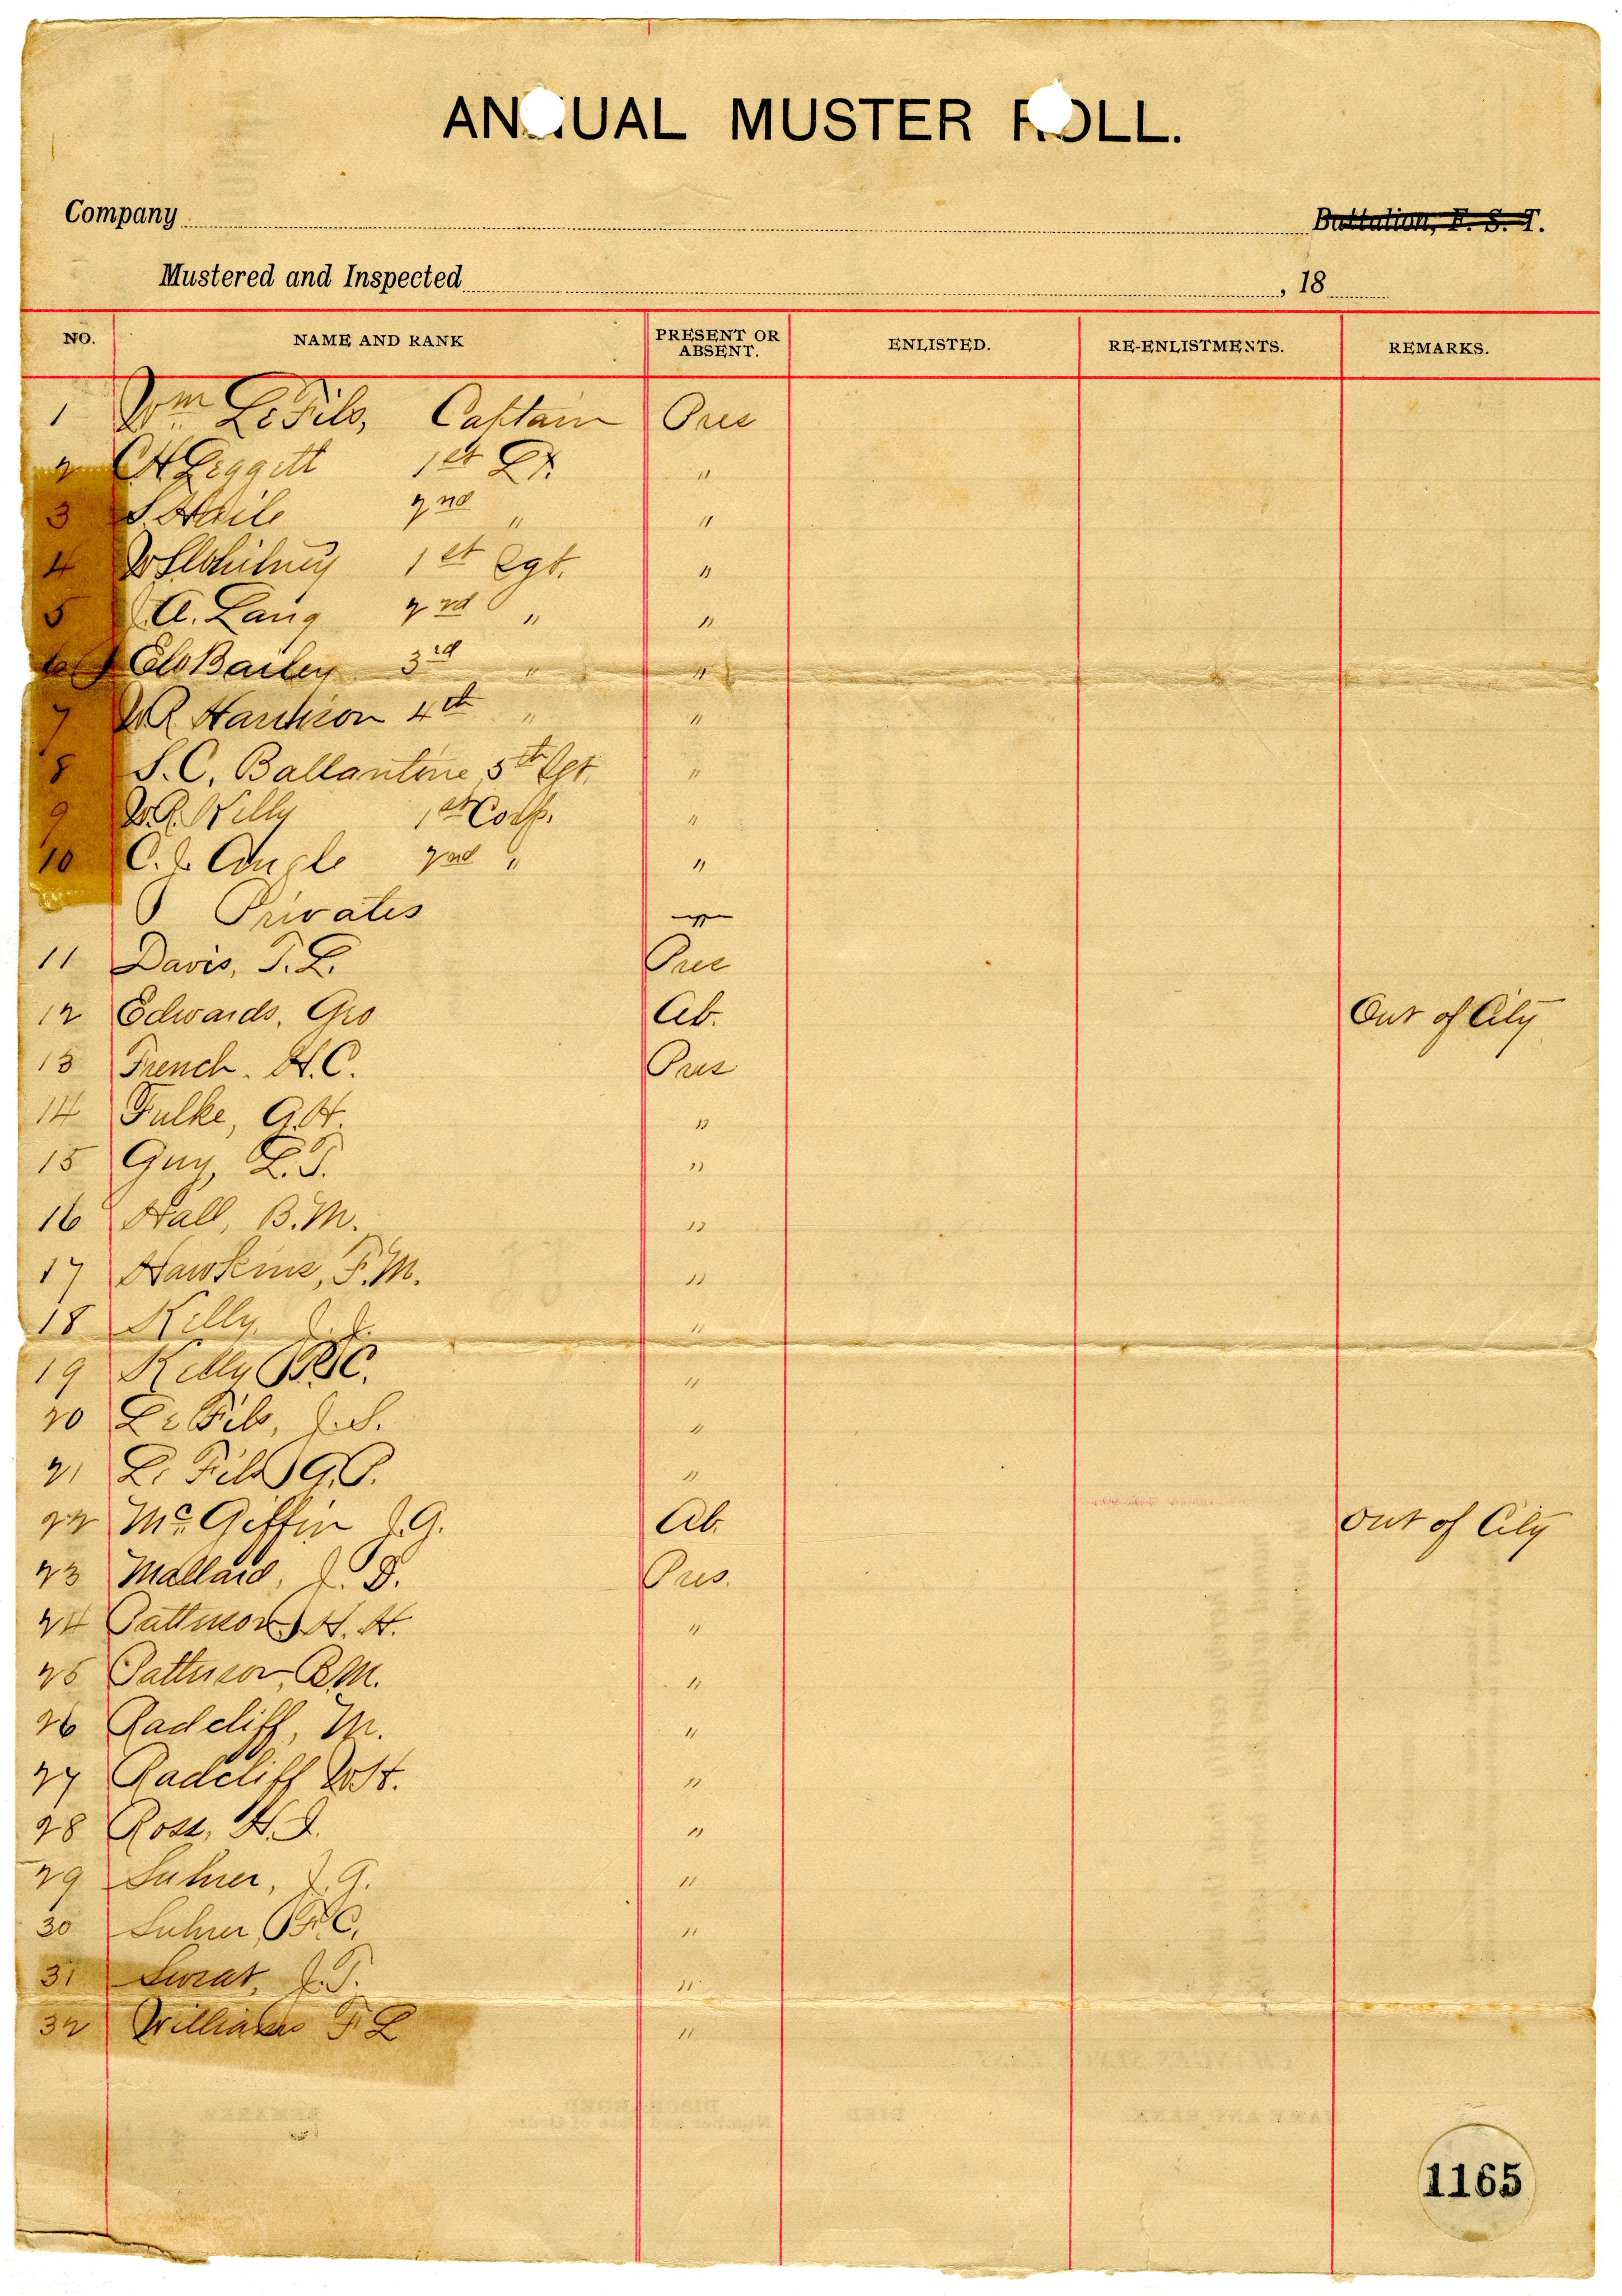 ANNUAL MUSTER ROLL.
Company Battalion, F. S. T.
Mustered and Inspected , 18
NO. NAME AND RANK PRESENT OR ABSENT. ENLISTED. RE-ENLISTMENTS. REMARKS.
1 Wm LeFils, Captain Pres
2 1st Lt. "
3 S. Haile 2nd " "
4 1st Sgt. "
5 A. Lang 2nd " "
6 Bailey 3rd " "
7 W.R. Harrison 4th " "
8 S.C. Ballantine 5th Sgt. "
9 W.R. Kelly 1st Corp. "
10 C.L. Angle 2nd " "
Privates
11 Davis, T.L. Pres
12 Edwards, Geo Ab. Out of City
13 French, H.C. Pres
14 Fulke, G.H. "
15 Guy, L.T. "
16 Hall, B.M. "
17 Hawkins, F.M. "
18 Kelly, J.J. "
19 Kelly, B.C. "
20 LeFils, J.S. "
21 LeFils, G.P. "
22 McGiffin J.G. Ab. Out of City
23 Mallard, J.D. Pres.
24 Patterson, H.H. "
25 Patterson, B.M. "
26 Radcliff, M. "
27 Radcliff W.H. "
28 Ross, H.J. "
29 Suhrer, J.G. "
30 Suhrer, F.C. "
31 Sweat, J.T. "
32 Williams F.L "
1165